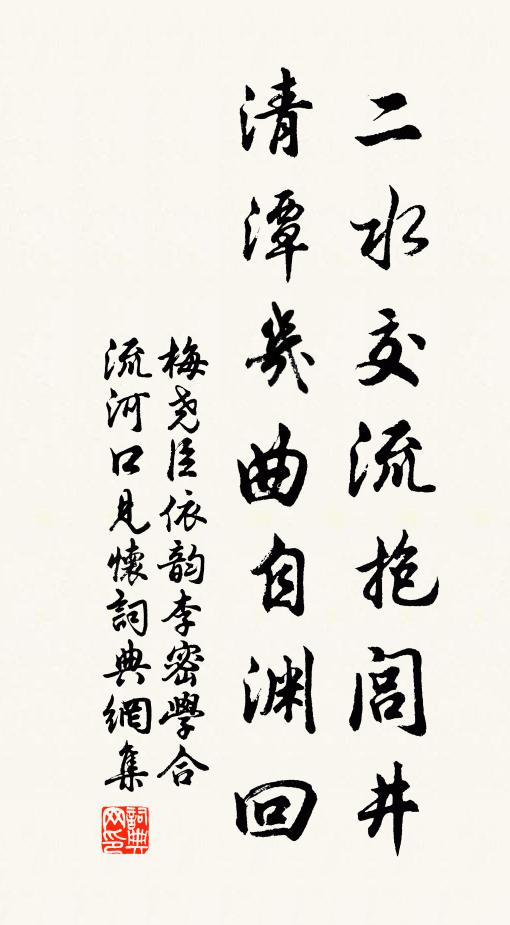 二水交流抱閭井
清潭幾曲自渊回
梅尭臣依韵李密學合
流河口見懷詞典網集
詞典網印